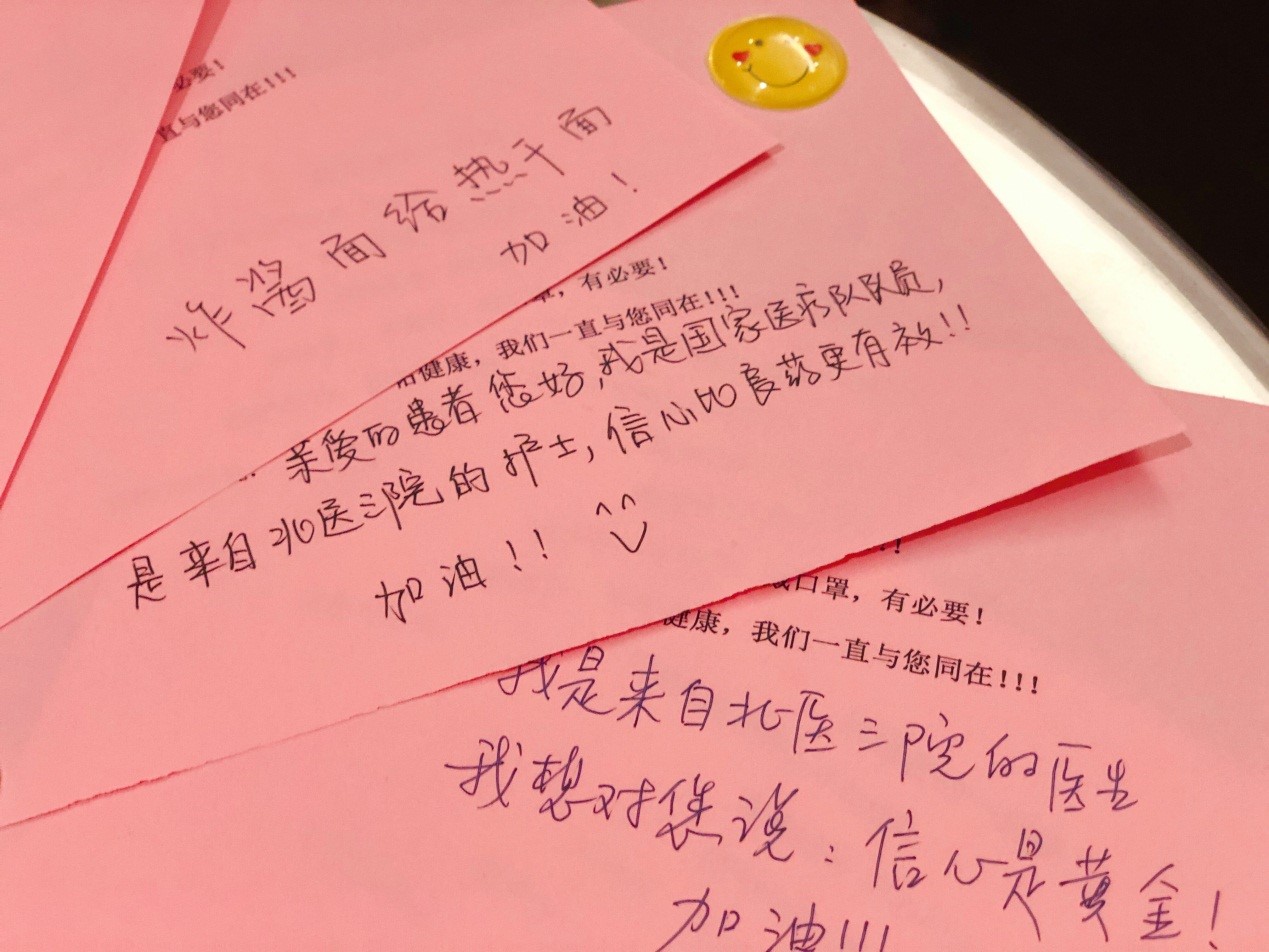 必要!
直与您同在!!!
炸酱面给热干面
加油!
,有必要!
健康,我们一直与您同在!!!
亲爱的患者您好,我是国家医疗队队员,
是来自北医三院的护士,信心比良药更有效!!
加油!!
戴口罩,有必要!
健康,我们一直与您同在!!!
我是来自北医三院的医生
我想对您说:信心是黄金!
加油!!!